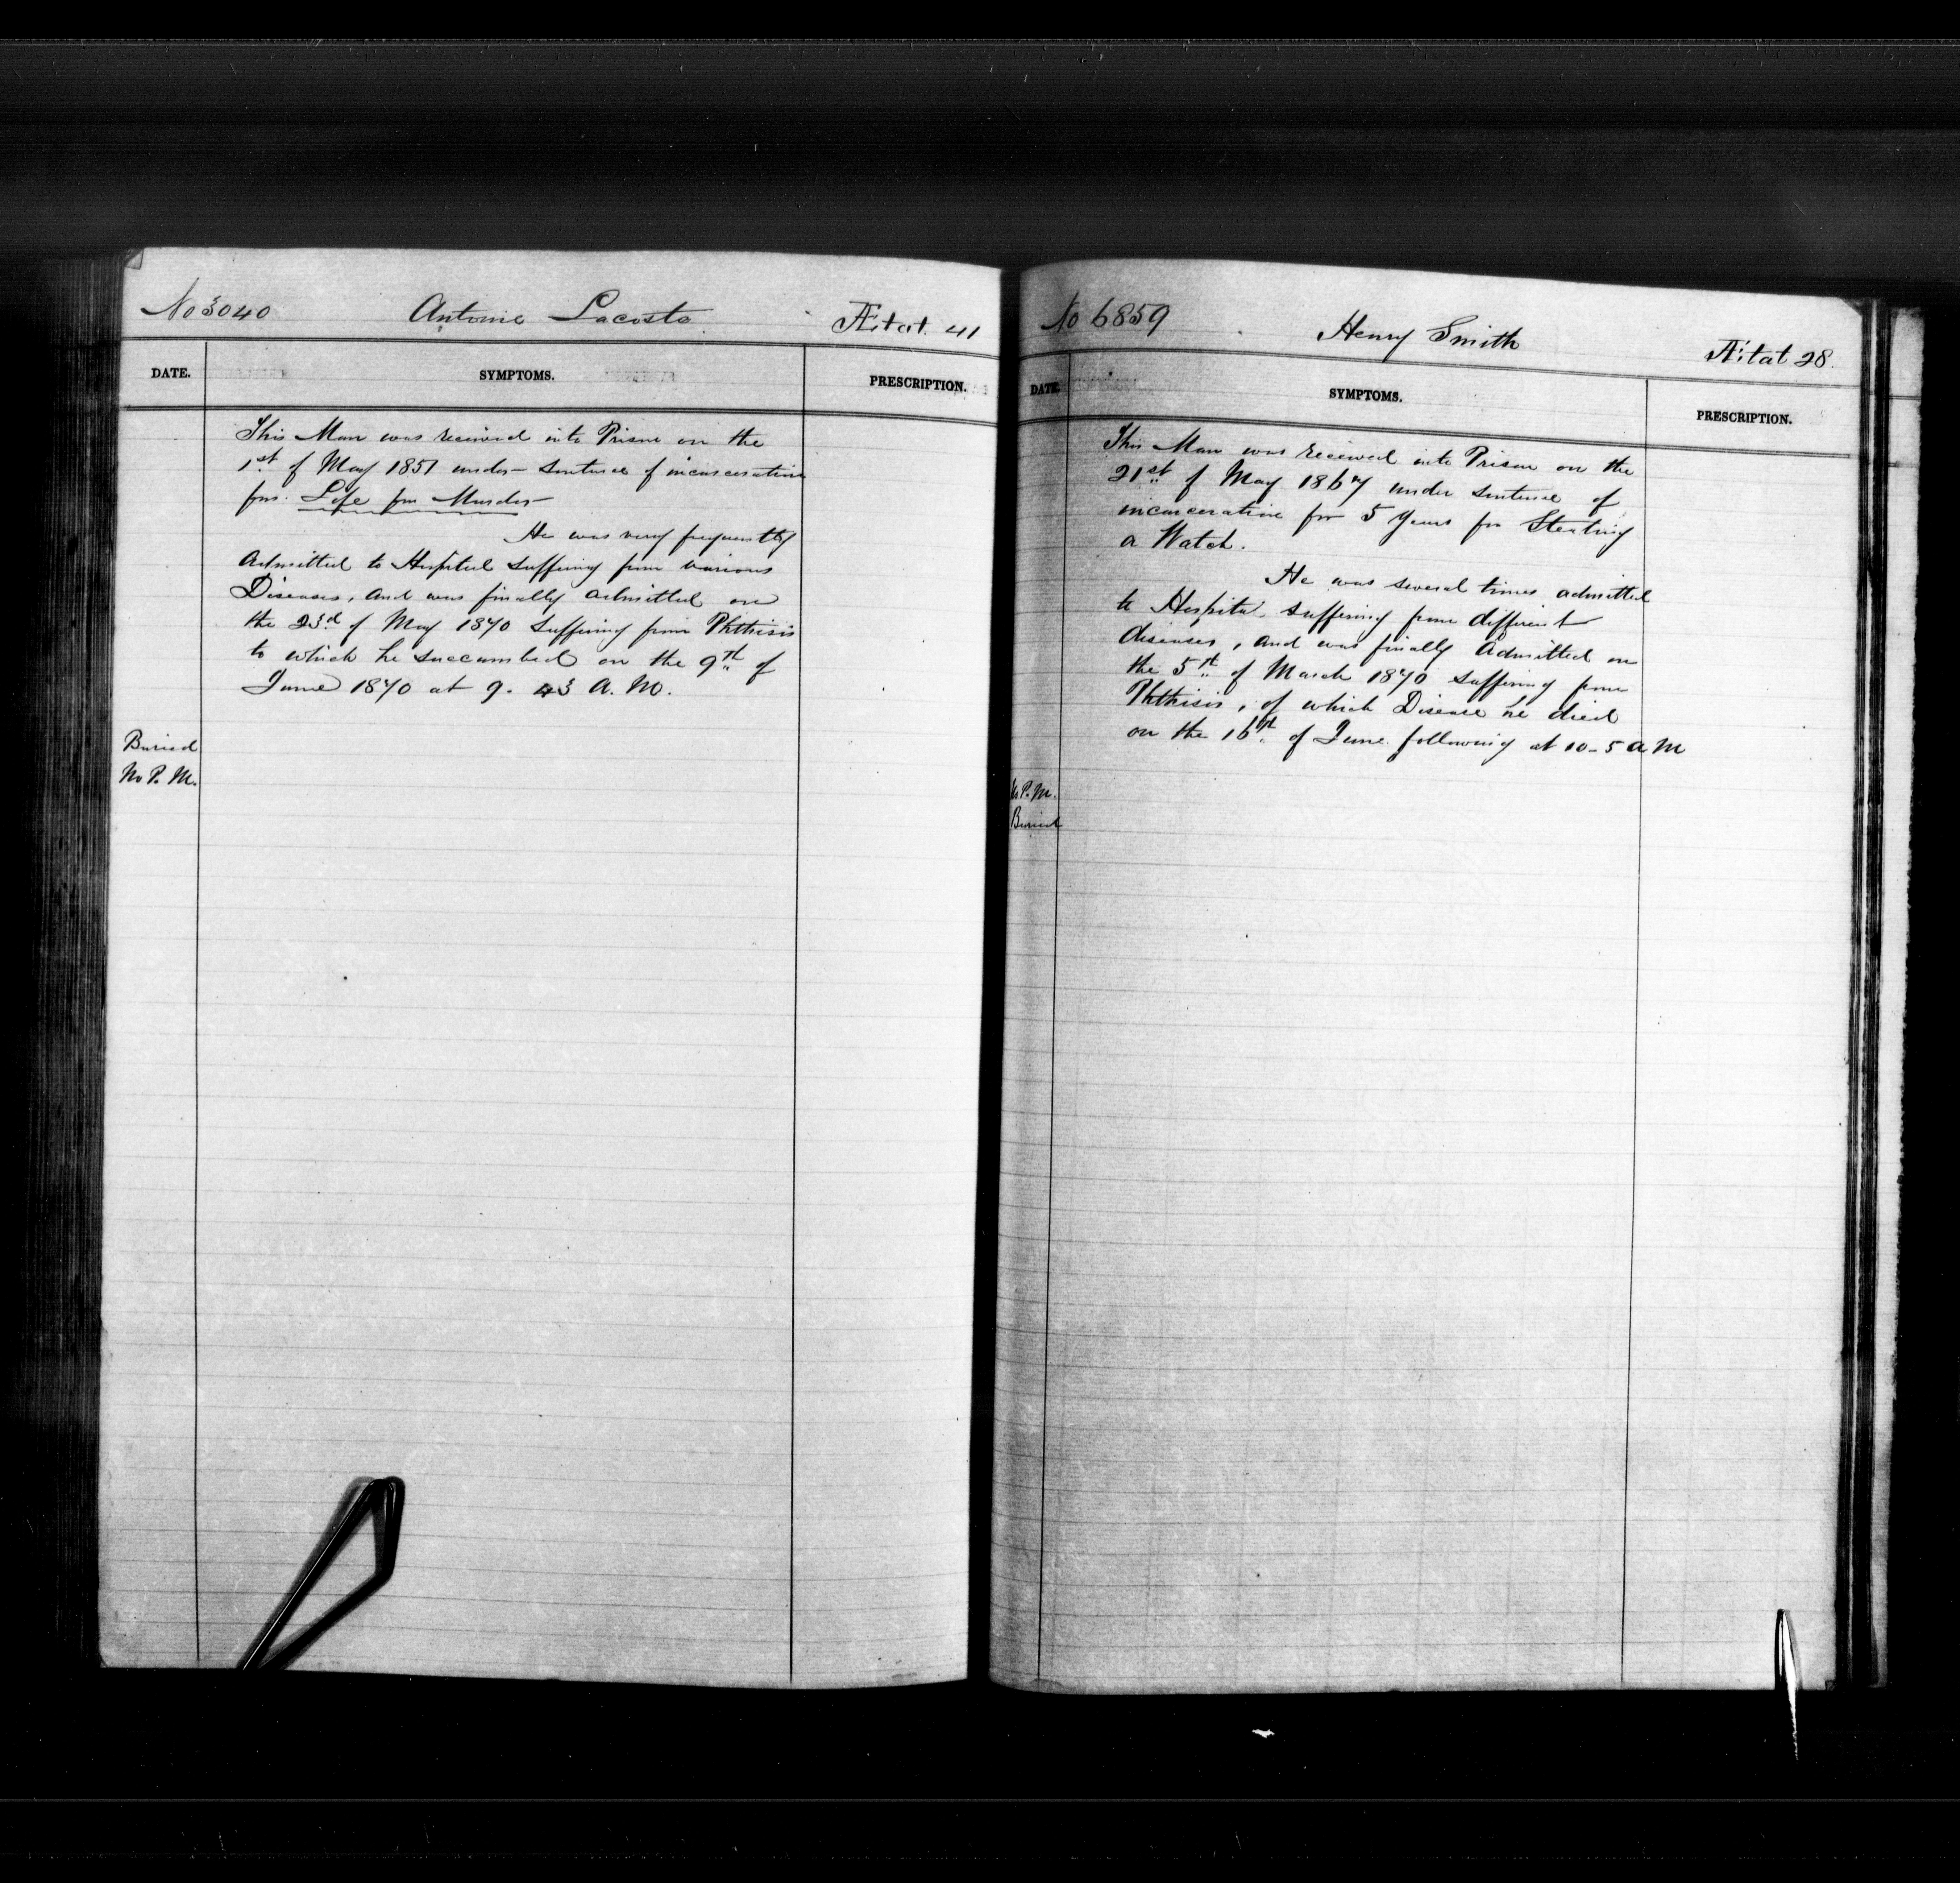 No 3040 Antoine Lacoste Ætat. 41
DATE. SYMPTOMS. PRESCRIPTION.
This Man was received into Prison on the
1st of May 1851 under sentence of incarceration
for Life for Murder
He was very frequently
Admitted to Hospital suffering from various
Diseases, and was finally admitted on
the 23d of May 1870 suffering from Phthisis
to which he succumbed on the 9th of
June 1870 at 9. 43 A. M.
Buried
No P. M.
No 6859 Henry Smith Ætat 28.
DATE. SYMPTOMS. PRESCRIPTION.
This Man was received into Prison on the
21st of May 1867 under sentence of
incarceration for 5 Years for Stealing
a Watch.
He was several times admitted
to Hospital suffering from different
diseases, and was finally Admitted on
the 5th of March 1870 suffering from
Phthisis, of which Disease he died
on the 16th of June following at 10-5 A M
No P. M.
Buried